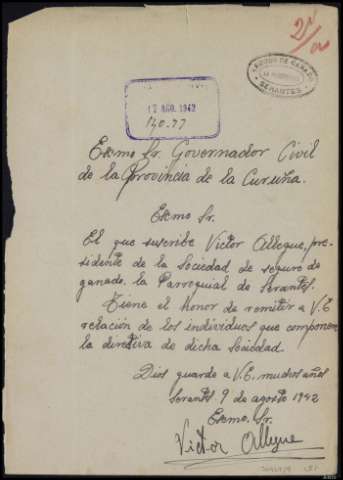 12 AGO. 1942
140-77
SEGUROS DE GANADO
SERANTES
Exmo Sr. Governador Civil
de la Provincia de la Curuña.
Exmo Sr.
El que suscribe Victor Allegue, pre-
sidente de la Sociedad de seguro de
ganado, la Parroquial de Serantes.
Tiene el honor de remitir a V.E
relación de los individuos que componen
la directiva de dicha Sociedad.
Dios guarde a V.E. muchos años
Serantes 9 de agosto 1942
Exmo. Sr.
Victor Allegue